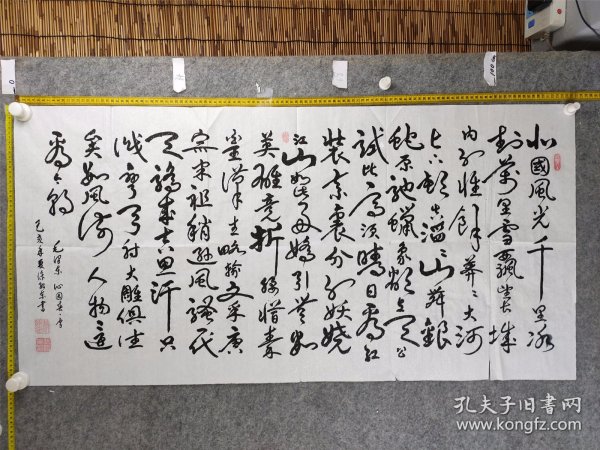 北國風光千里冰
封萬里雪飄望長城
内外惟餘莽々大河
上下頓失滔々山舞銀
蛇原馳蠟象欲与天公
試比高須晴日看红
装素裹分外妖嬈
江山如此多嬌引無數
英雄竞折腰惜秦
皇漢武略输文采唐
宗宋祖稍遜風骚一代
天驕成吉思汗只
識彎弓射大雕俱往
矣數風流人物還
看今朝
毛澤東 沁園春·雪
己亥年夏徐 東書
孔夫子旧书网
www.kongfz.com